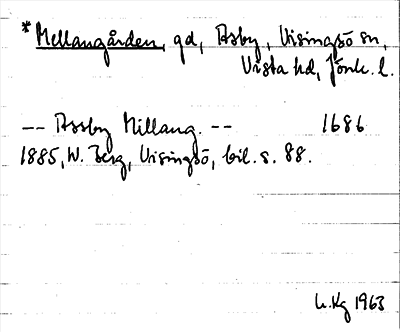 *Mellangården, gd, Åsby, Visingsö sn,
Vista hd, Jönk. l.
-- Assby Millang. -- 1686
1885, W. Berg, Visingsö, bil. s. 88.
L. Kg 1963